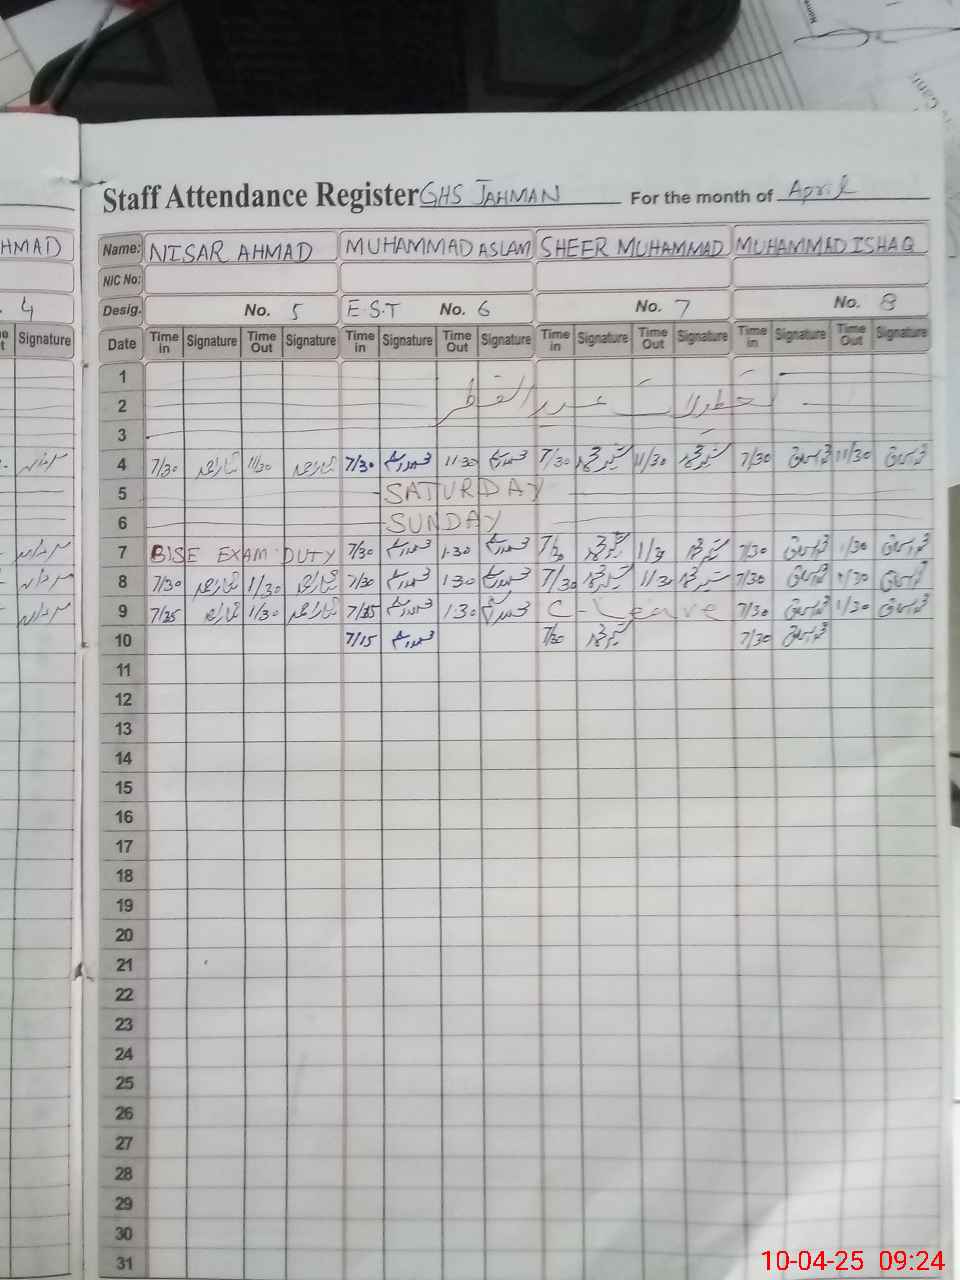 Staff Attendance Register GHS JAHMAN For the month of April
HMAD Name: NISAR AHMAD MUHAMMAD ASLAM SHEER MUHAMMAD MUHAMMAD ISHAQ
NIC No:
4 Desig. No. 5 E.S.T No. 6 No. 7 No. 8
Signature Date Time in Signature Time Out Signature Time in Signature Time Out Signature Time in Signature Time Out Signature Time in Signature Time Out Signature
1
2 عيد الفطر
3
4 7/30 نثار احمد 11/30 نثار احمد 7/30 محمد اسلم 11:30 محمد اسلم 7/30 شیر محمد 11/30 شیر محمد 7/30 محمد اسحاق 11/30 محمد اسحاق
5 SATURDAY
6 SUNDAY
7 BISE EXAM DUTY 7/30 محمد اسلم 1:30 محمد اسلم شیر محمد شیر محمد 7/30 محمد اسحاق 1/30 محمد اسحاق
8 7/30 نثار احمد 1/30 نثار احمد 7/30 محمد اسلم 1:30 محمد اسلم 7/30 شیر محمد شیر محمد 7/30 محمد اسحاق 1/30 محمد اسحاق
9 7/35 نثار احمد 1/30 نثار احمد محمد اسلم 1:30 محمد اسلم C-Leave 7/30 محمد اسحاق 1/30 محمد اسحاق
10 7/15 محمد اسلم 7/30 شیر محمد 7/30 محمد اسحاق
11
12
13
14
15
16
17
18
19
20
21
22
23
24
25
26
27
28
29
30
31
10-04-25 09:24